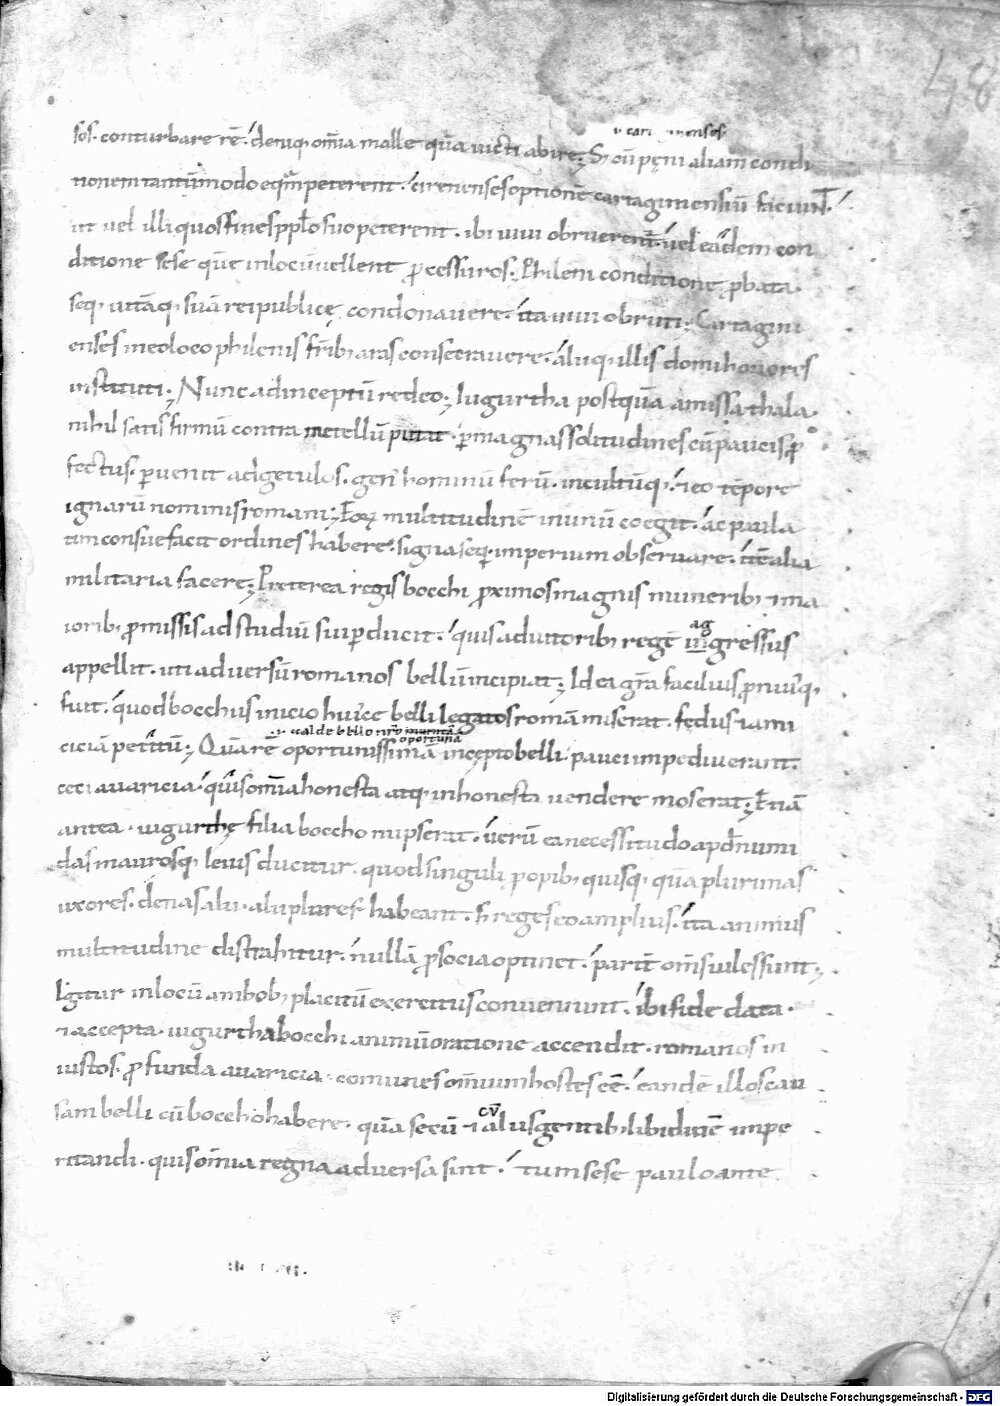 48
sos · conturbare rē · deniq; om̄ia malle quā victi abire; S; cū pęni aliam condi
tionem tantūmodo eq̄m peterent · cirenenses optionē cartaginensiū faciunt ·
ut vel illi quos fines pp̄lo suo peterent · ibi vivi obruerent̄ · vel eādem con
ditione sese quē in locū vellent ꝓcessuros · Phileni conditione ꝓbata ·
seq; vitāq; suā rei publicę condonavere · ita vivi obruti; Cartagini
enses in eo loco philenis frīb; aras consecravere · aliiq; illis domi honores
instituti; Nunc ad inceptū redeo; Iugurtha postquā amissa thala ·
nihil satis firmū contra metellū putat · ꝑ magnas solitudines cū paucis ꝓ
fectus · ꝑvenit ad getulos · gen' hominū ferū · incultūq; · ⁊ eo tēpore
ignarū nominis romani; Eoꝝ multitudinē in unū coegit · ac paula
tim consuefacit ordines habere · signa seq; · imperium observare · itē alia
militaria facere; Pręterea regis bocchi ꝓximos magnis munerib; ⁊ ma
iorib; ꝓmissis ad studiū sui ꝑducit · quis adiutorib; regē ingressus
ag
appellit · uti adversū romanos bellū incipiat; Id ea gr̄a facilius ꝓniusq;
fuit · quod bocchus inicio huiᵉce belli legatos romā miserat · fedus ⁊ ami
valde bello oportuna
ciciā petitū; Quā rē oportunissimā incepto belli · pauci impediverant ·
ceci avaricia · quis om̄ia honesta atq; inhonesta vendere mos erat; Etiā
antea · iugurthę filia boccho nupserat · verū ea necessitudo apd̄ numi
das maurosq; levis ducitur · quod singuli ꝓ opib; quisq; quā plurimas
uxores · denas alii · alii plures habeant · S; reges eo amplius · ita animus
multitudine distrahitur · nullā ꝓ socia optinet · parit̄ om̄s viles sunt;
Igitur in locū ambob; placitū exercitus conveniunt · ibi fide data ·
⁊ accepta · iugurtha bocchi animū oratione accendit · romanos in
iustos · ꝓfunda avaricia · comunes omnium hostes eē · eandē illos cau
sam belli cū boccho habere · quā secū ⁊ cū aliis gentib; libidinē impe
ritandi · quis om̄ia regna adversa sint · tum sese paulo ante
Digitalisierung gefördert durch die Deutsche Forschungsgemeinschaft - DFG